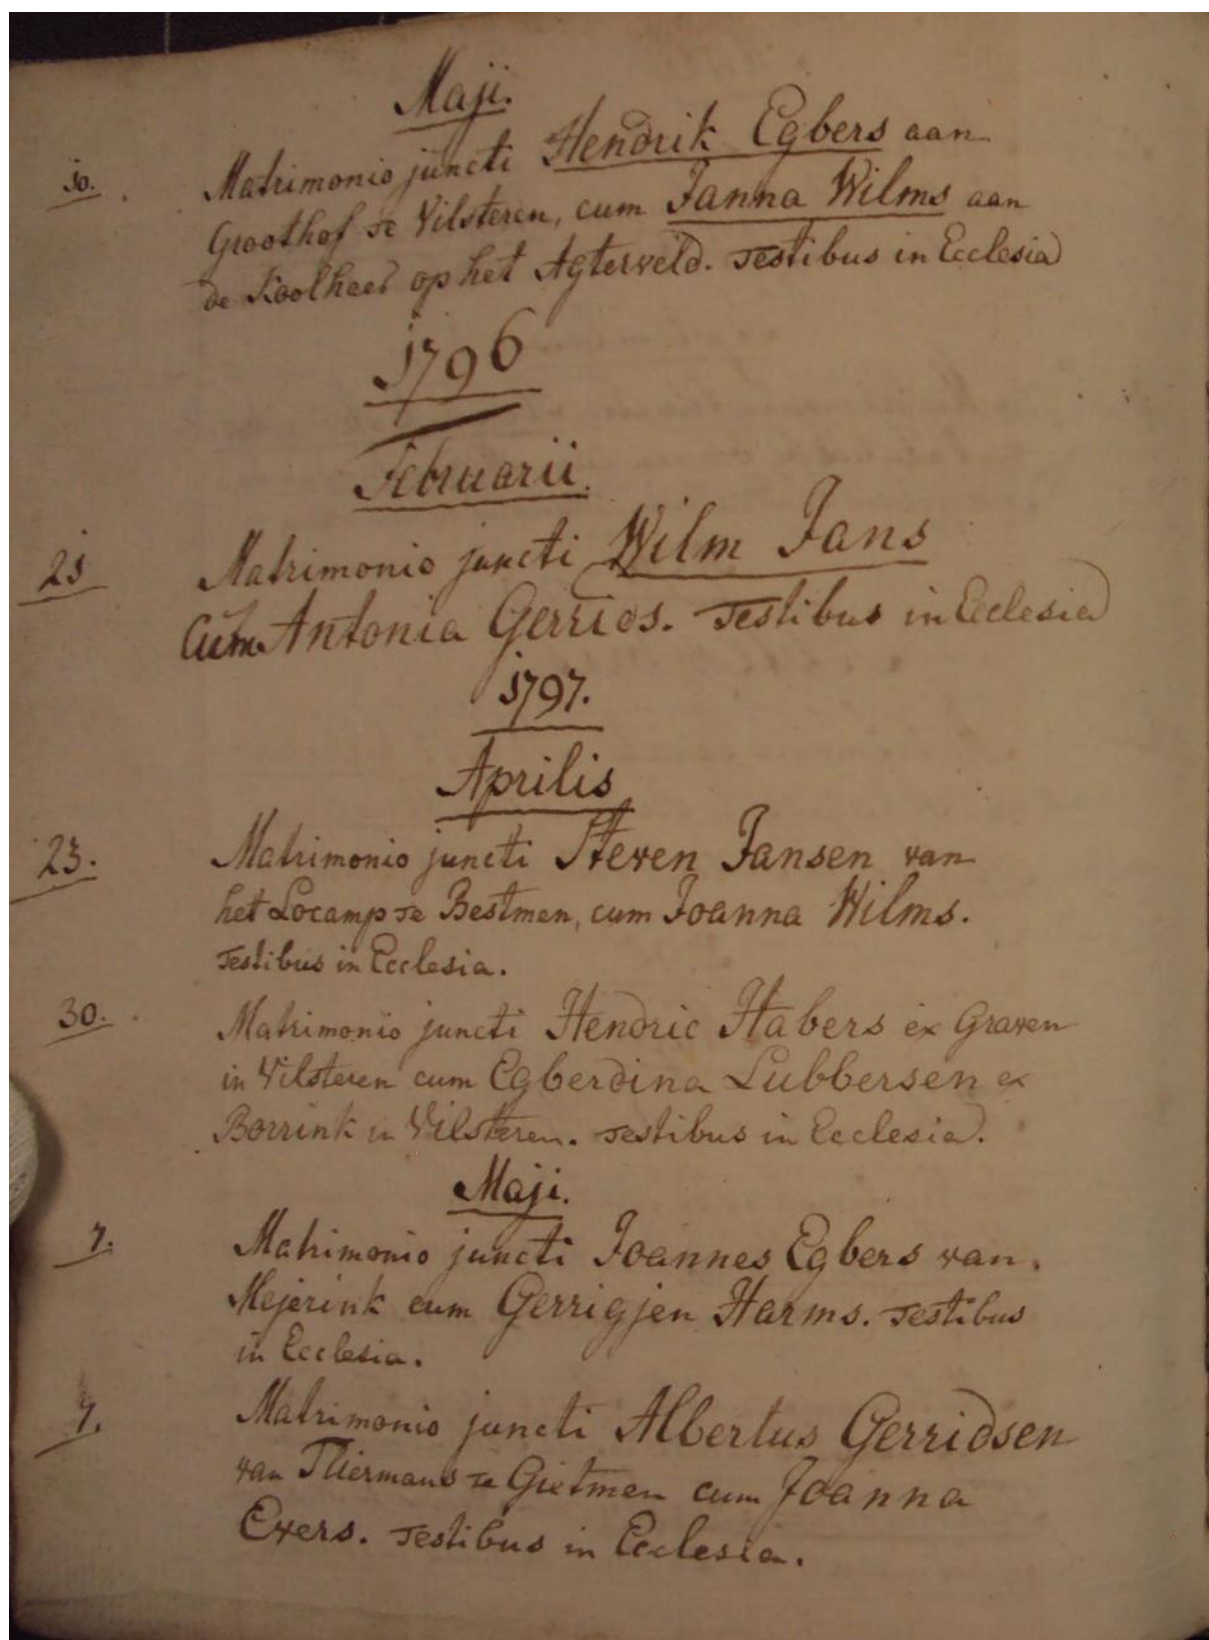 Maji.
30. Matrimonio juncti Hendrik Egbers aan
Groothof te Vilsteren, cum Janna Wilms aan
de op het Agterveld. Testibus in Ecclesia
1796
Februarii.
25 Matrimonio juncti Wilm Jans
Cum Antonia Gerrids. Testibus in Ecclesia
1797.
Aprilis
23. Matrimonio juncti Steven Jansen van
het Locamp te Bestmen, cum Joanna Wilms.
Testibus in Ecclesia.
30. Matrimonio juncti Hendric Habers ex Graven
in Vilsteren cum Egberdina Lubbersen ex
Borrink in Vilsteren. Testibus in Ecclesia.
Maji.
7. Matrimonio juncti Joannes Egbers van
Mejerink cum Gerrigjen Harms. Testibus
in Ecclesia.
7. Matrimonio juncti Albertus Gerridsen
van te Gietmen cum Joanna
Evers. Testibus in Ecclesia.